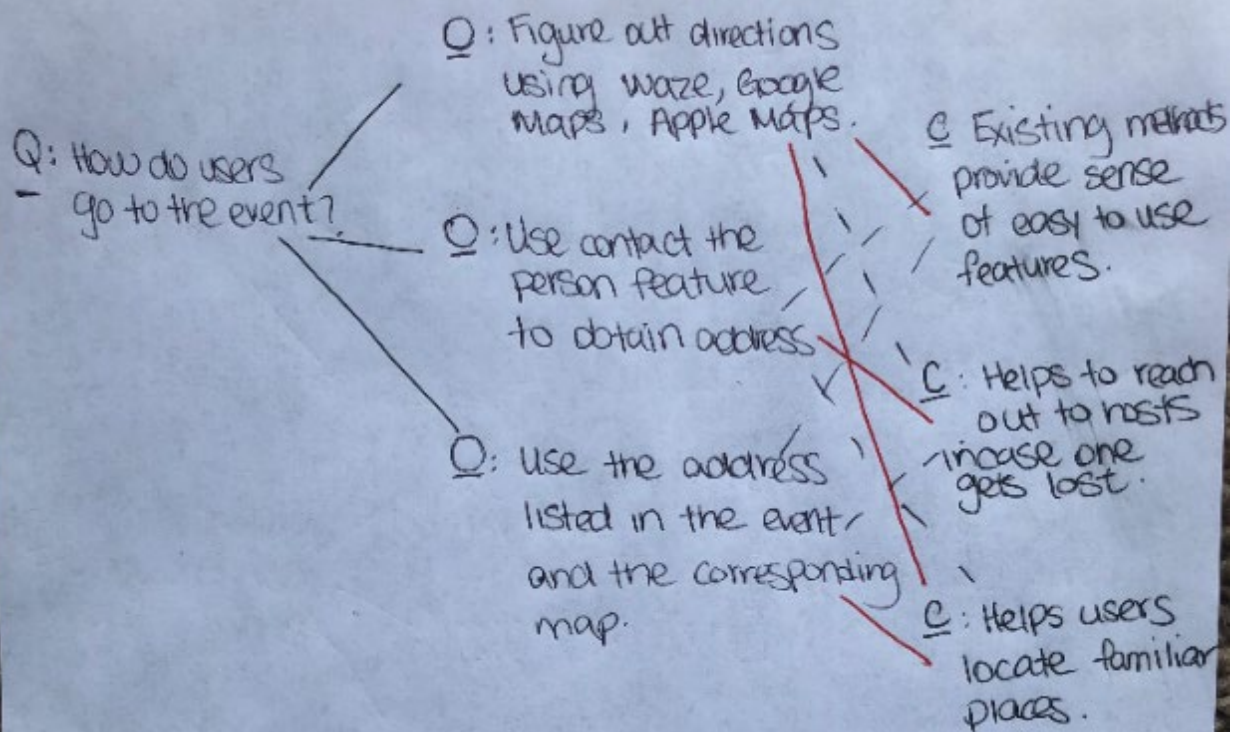 Q: How do users
go to the event?
O: Figure out directions
using Waze, Google
Maps, Apple Maps.
O: Use contact the
person feature
to obtain address
O: Use the address
listed in the event
and the corresponding
map.
C Existing methods
provide sense
of easy to use
features.
C: Helps to reach
out to hosts
incase one
gets lost.
C: Helps users
locate familiar
places.